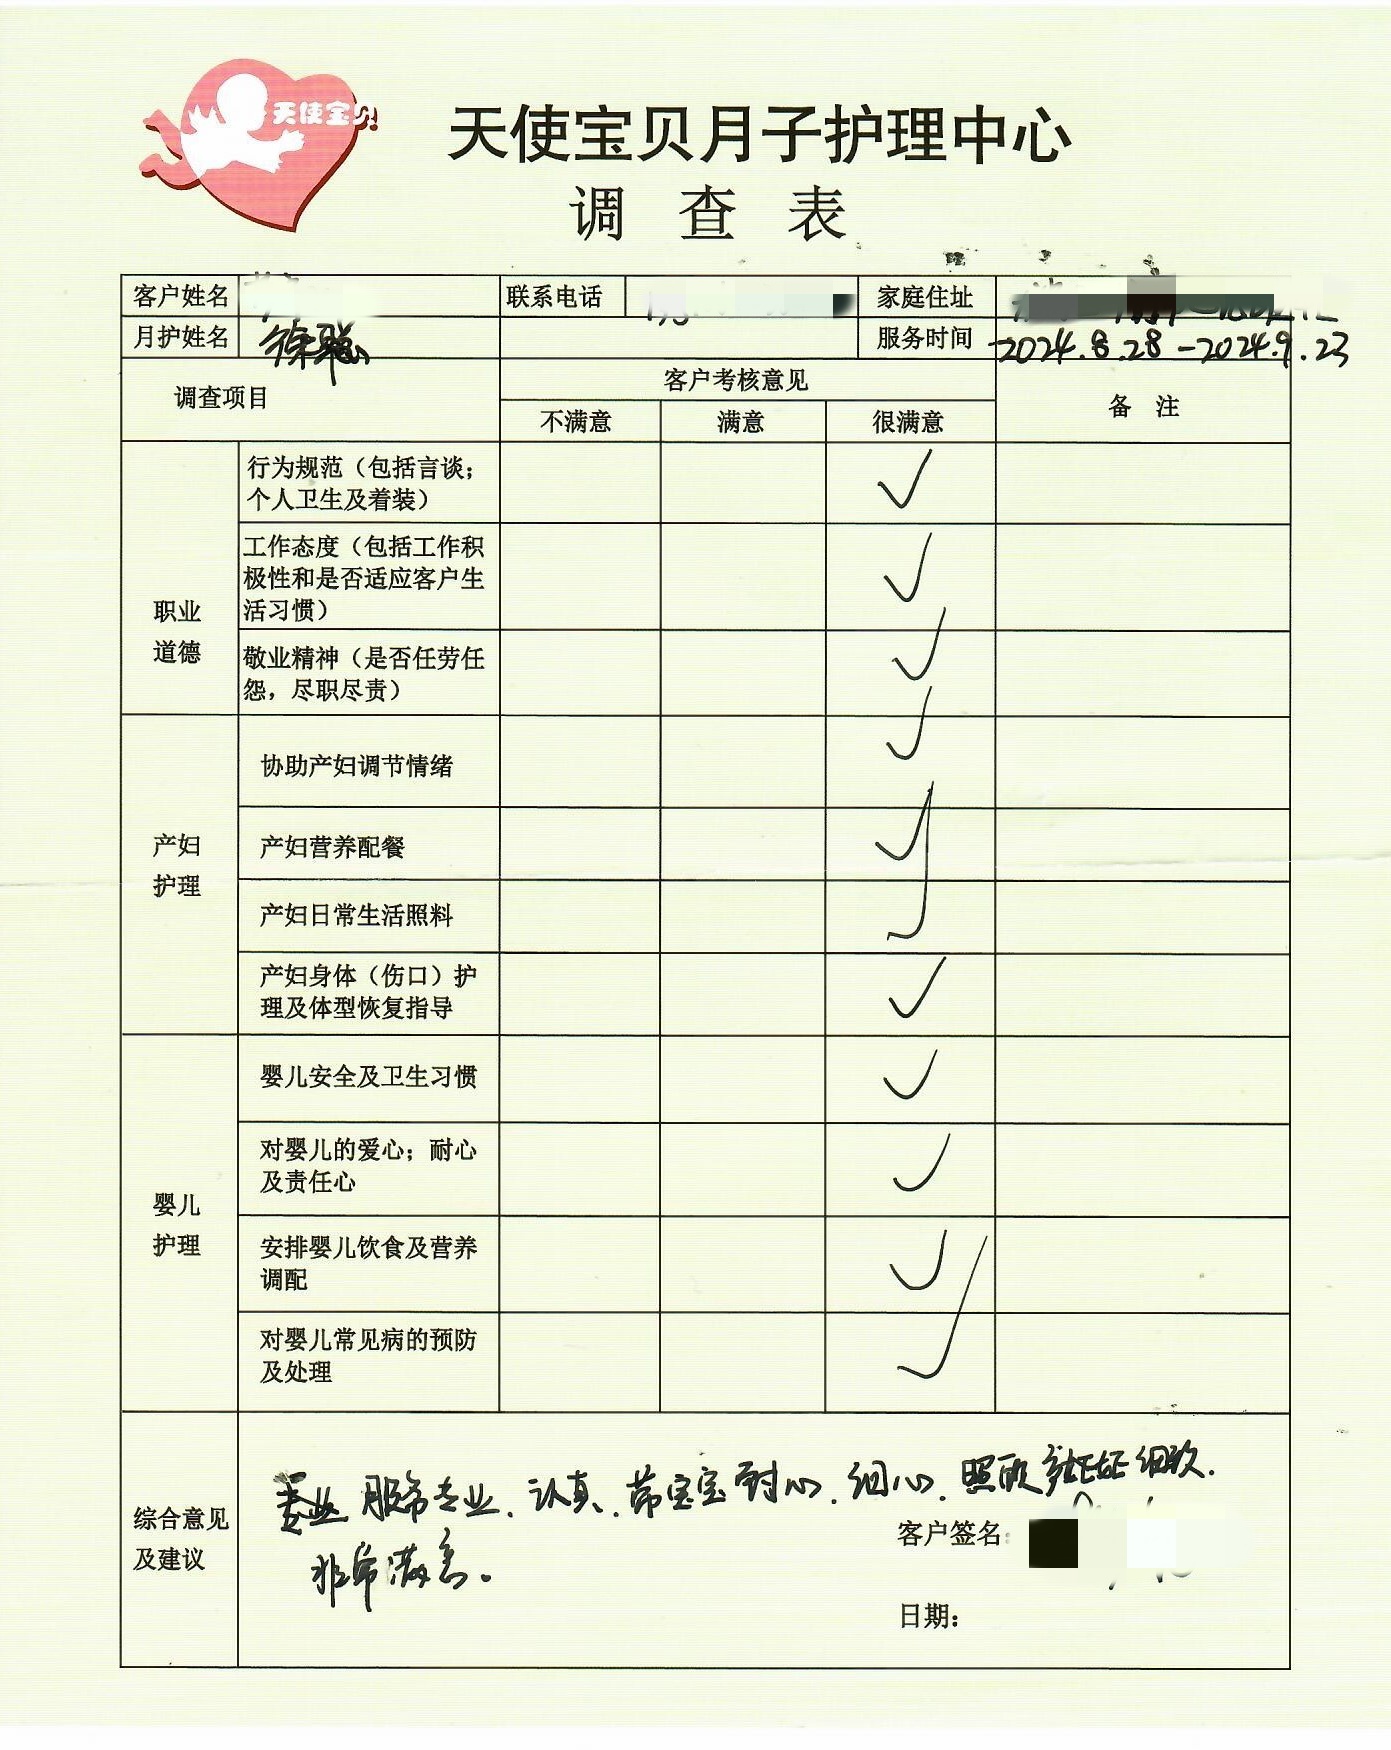 天使宝贝
天使宝贝月子护理中心
调 查 表
客户姓名 联系电话 家庭住址
月护姓名 徐聪 服务时间 2024.8.28-2024.9.23
调查项目 客户考核意见 备 注
不满意 满意 很满意
职业
道德
行为规范（包括言谈；
个人卫生及着装）
工作态度（包括工作积
极性和是否适应客户生
活习惯）
敬业精神（是否任劳任
怨，尽职尽责）
产妇
护理
协助产妇调节情绪
产妇营养配餐
产妇日常生活照料
产妇身体（伤口）护
理及体型恢复指导
婴儿
护理
婴儿安全及卫生习惯
对婴儿的爱心；耐心
及责任心
安排婴儿饮食及营养
调配
对婴儿常见病的预防
及处理
综合意见
及建议
服务专业、认真、带宝宝耐心、细心、照顾 细致.
非常满意。
客户签名：
日期：